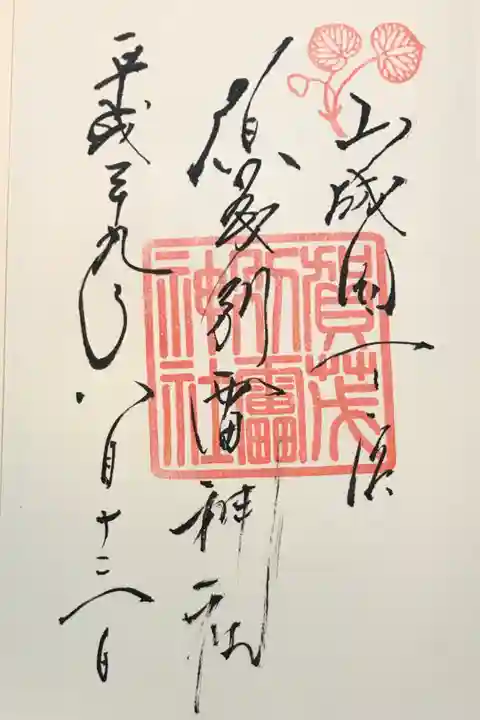 山城国一ノ宮
賀茂別雷神社
平成二十九年八月十二日
賀茂別雷神社